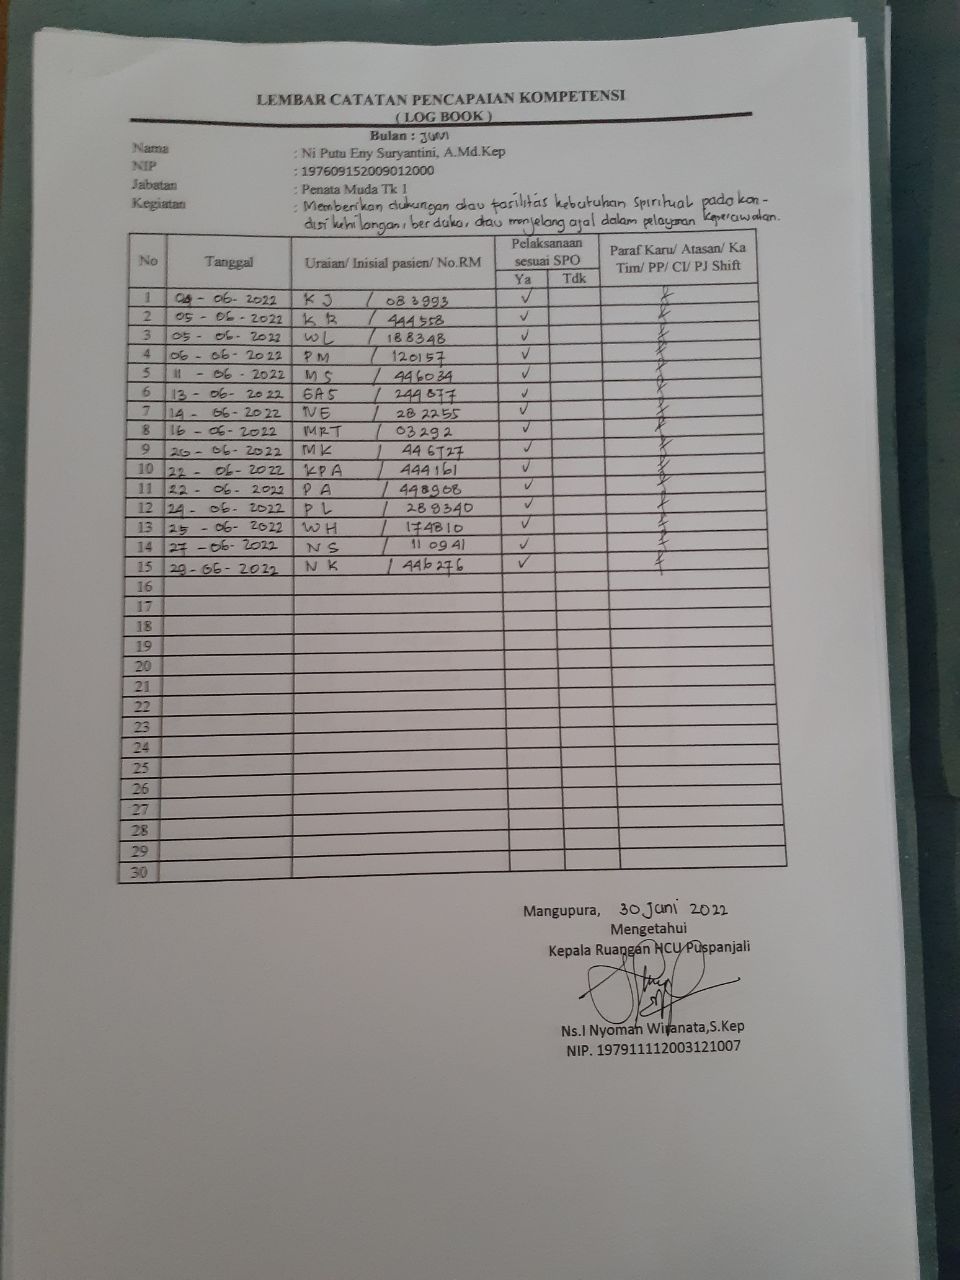 LEMBAR CATATAN PENCAPAIAN KOMPETENSI
( LOG BOOK )
Bulan : JUNI
Nama : Ni Putu Eny Suryantini, A.Md.Kep
NIP : 197609152009012000
Jabatan : Penata Muda Tk 1
Kegiatan : Memberikan dukungan atau fasilitas kebutuhan spiritual pada kon-
disi kehilangan, berduka, atau menjelang ajal dalam pelayanan keperawatan.
No Tanggal Uraian/ Inisial pasien/ No.RM Pelaksanaan sesuai SPO Paraf Karu/ Atasan/ Ka Tim/ PP/ CI/ PJ Shift
Ya Tdk
1 04 - 06 - 2022 KJ / 083993 ✓
2 05 - 06 - 2022 KR / 444558 ✓
3 05 - 06 - 2022 WL / 188348 ✓
4 06 - 06 - 2022 PM / 120157 ✓
5 11 - 06 - 2022 MS / 446034 ✓
6 13 - 06 - 2022 / 244877 ✓
7 14 - 06 - 2022 NE / 282255 ✓
8 16 - 06 - 2022 MRT / 03292 ✓
9 20 - 06 - 2022 MK / ✓
10 22 - 06 - 2022 KPA / 444161 ✓
11 22 - 06 - 2022 PA / 448908 ✓
12 24 - 06 - 2022 PL / 289340 ✓
13 25 - 06 - 2022 WH / 174810 ✓
14 27 - 06 - 2022 NS / 110941 ✓
15 29 - 06 - 2022 NK / 446276 ✓
16
17
18
19
20
21
22
23
24
25
26
27
28
29
30
Mangupura, 30 Juni 2022
Mengetahui
Kepala Ruangan HCU Puspanjali
Ns.I Nyoman Wiranata,S.Kep
NIP. 197911112003121007